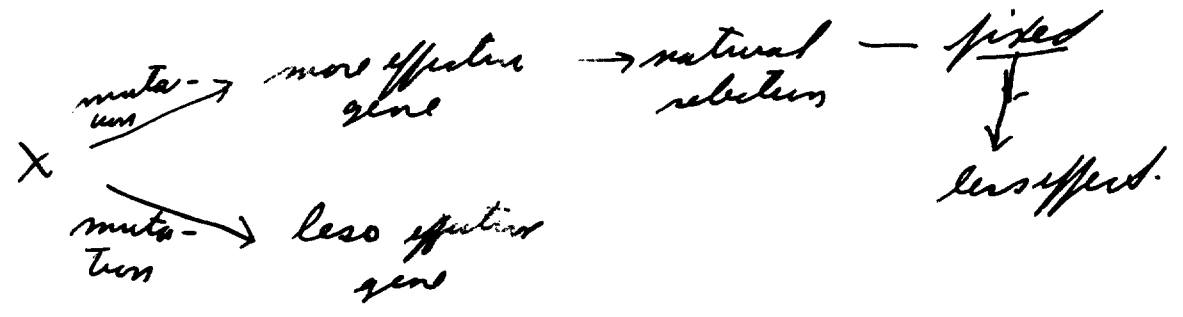 muta-
tion
more effective
gene
→ natural
selection
— fixed
X
less effect.
muta-
tion
less effective
gene